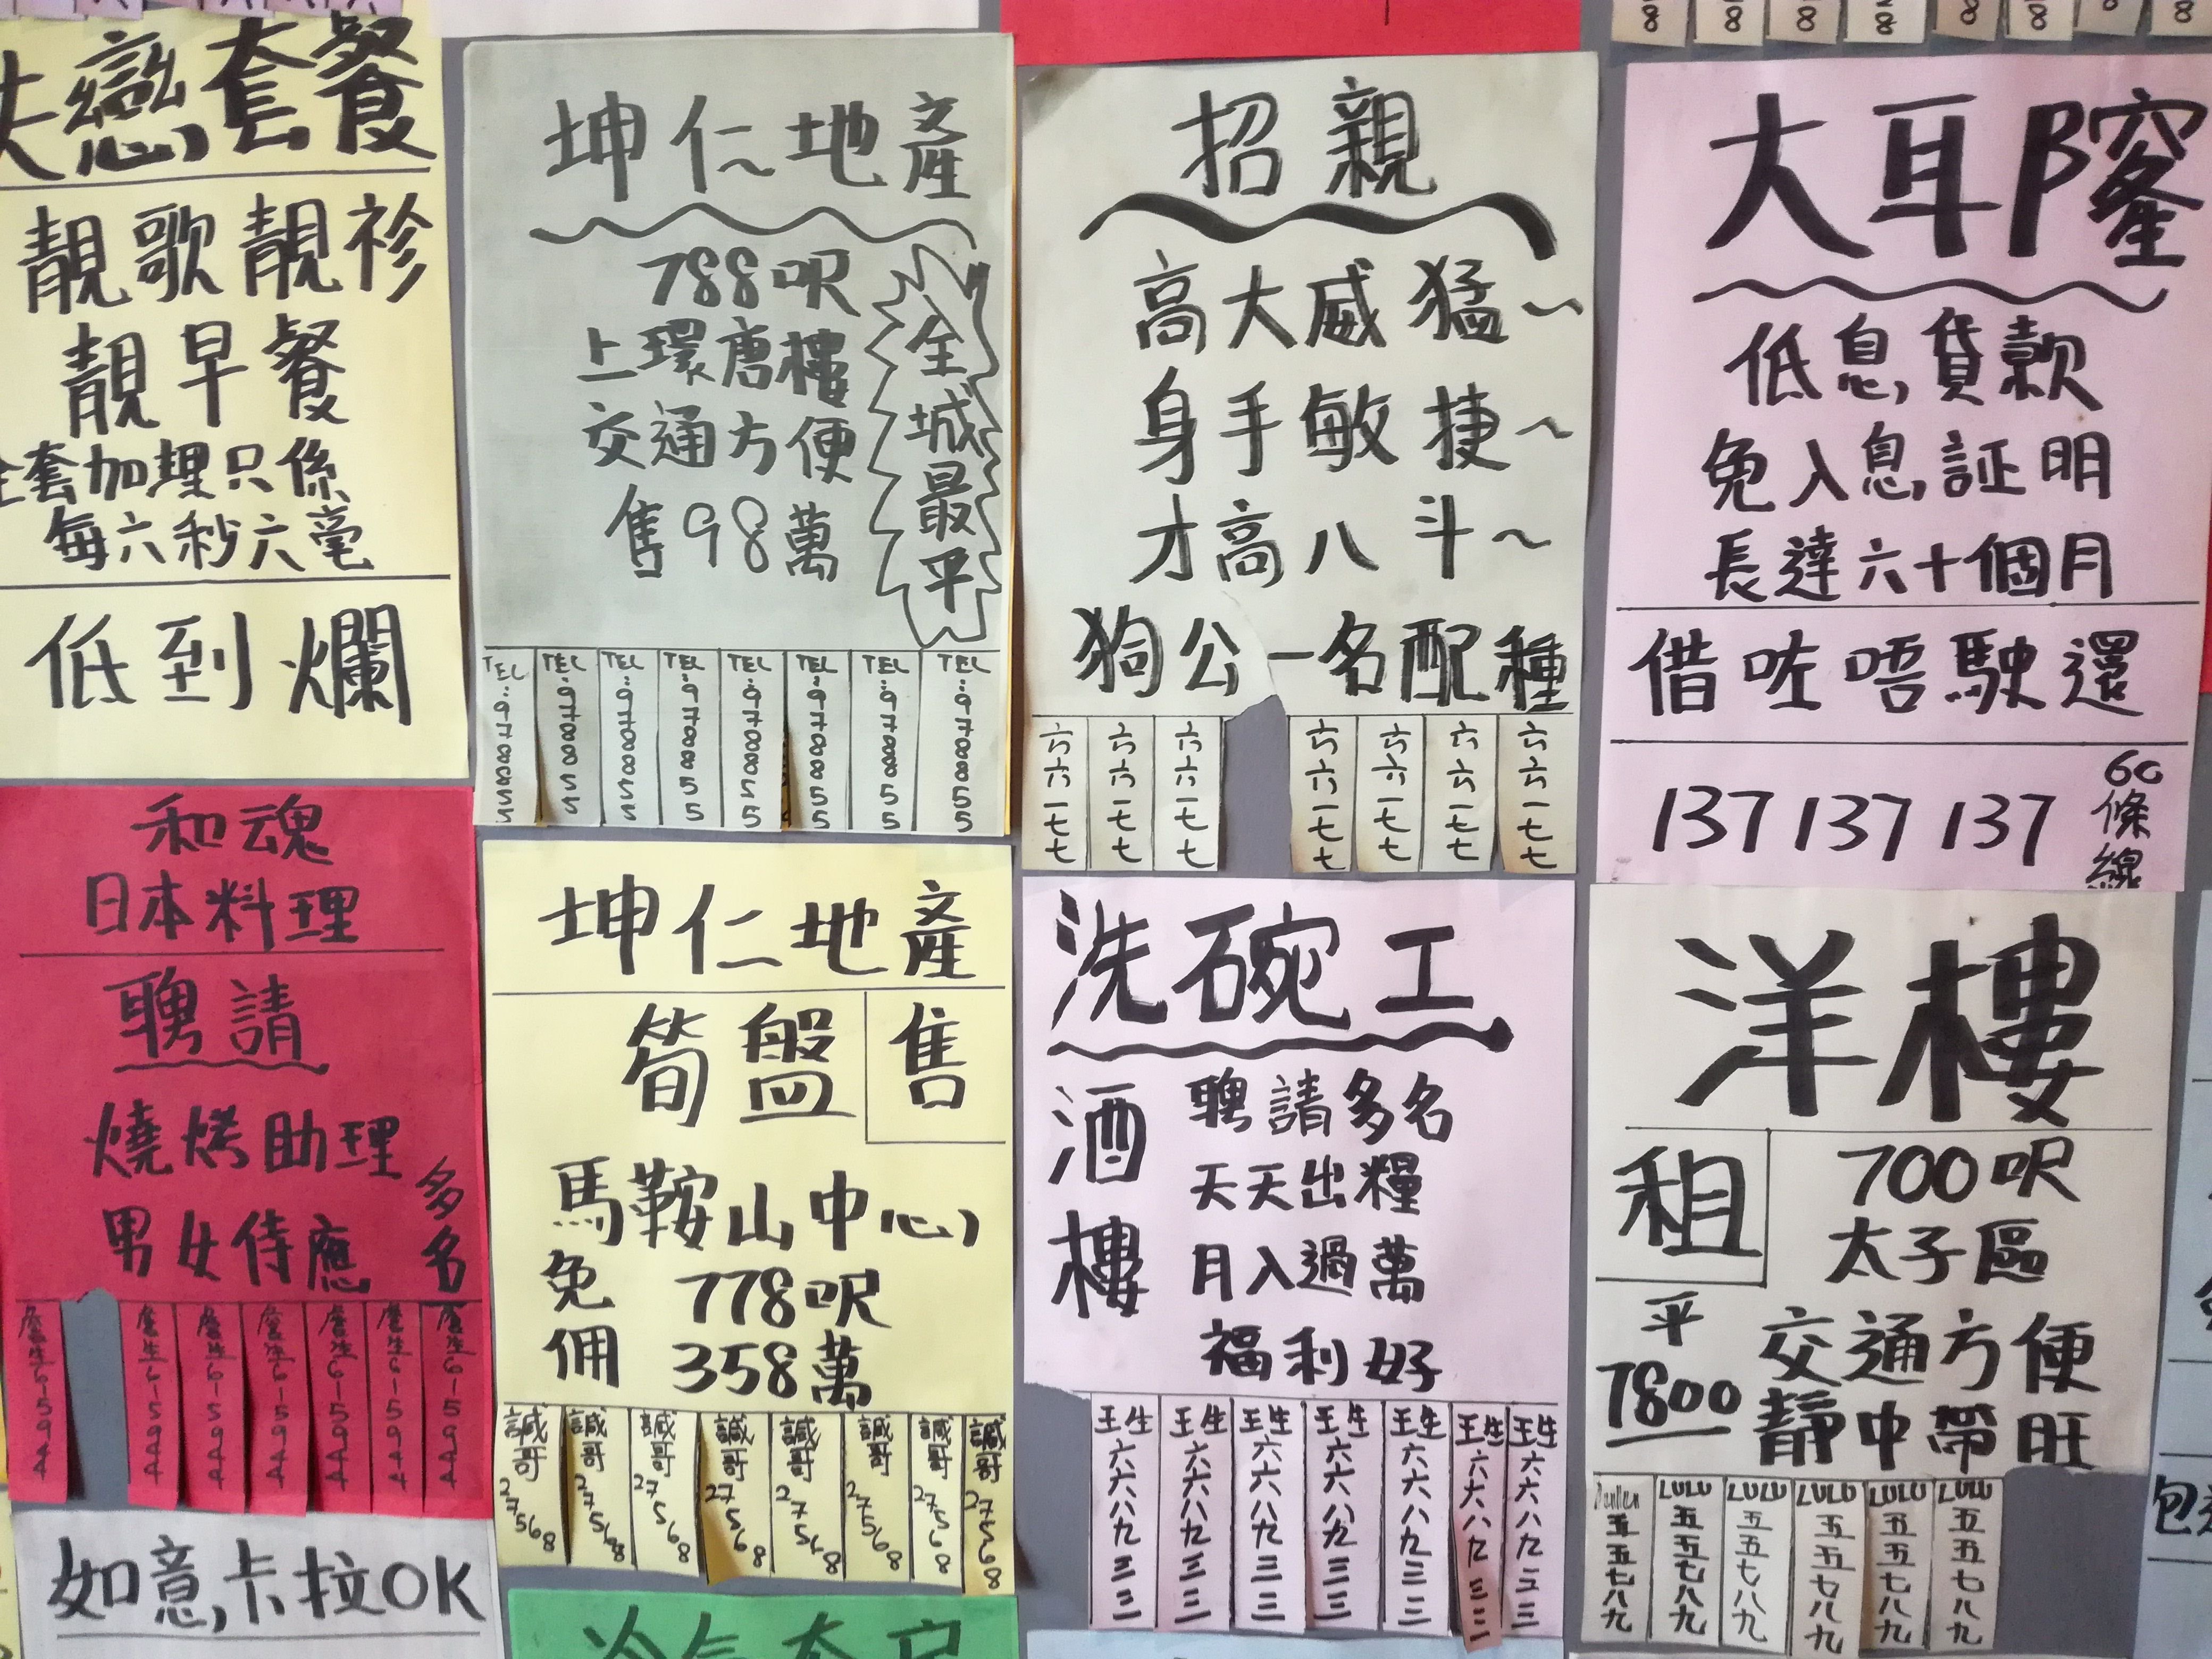 戀套餐
靚歌靚衫
靚早餐
全套加埋只係
每六秒六毫
低到爛
坤仁地產
788呎
上環唐樓
交通方便
售98萬
全城最平
TEL:978855
TEL:978855
TEL:978855
TEL:978855
TEL:978855
TEL:978855
TEL:978855
TEL:978855
招親
高大威猛~
身手敏捷~
才高八斗~
狗公一名配種
六六一七七
六六一七七
六六一七七
六六一七七
六六一七七
六六一七七
六六一七七
大耳窿
低息貸款
免入息証明
長達六十個月
借咗唔駛還
137 137 137
60條線
和魂
日本料理
聘請
燒烤助理
男女侍應
多名
6-15944
6-15944
6-15944
6-15944
6-15944
6-15944
6-15944
坤仁地產
筍盤
售
馬鞍山中心
免佣
778呎
358萬
誠哥27568
誠哥27568
誠哥27568
誠哥27568
誠哥27568
誠哥27568
誠哥27568
誠哥27568
洗碗工
酒樓
聘請多名
天天出糧
月入過萬
福利好
王生六六八九三三
王生六六八九三三
王生六六八九三三
王生六六八九三三
王生六六八九三三
王生六六八九三三
王生六六八九三三
洋樓
租
700呎
太子區
平
7800
交通方便
靜中帶旺
五五七八九
LULU五五七八九
LULU五五七八九
LULU五五七八九
LULU五五七八九
LULU五五七八九
如意卡拉OK
包